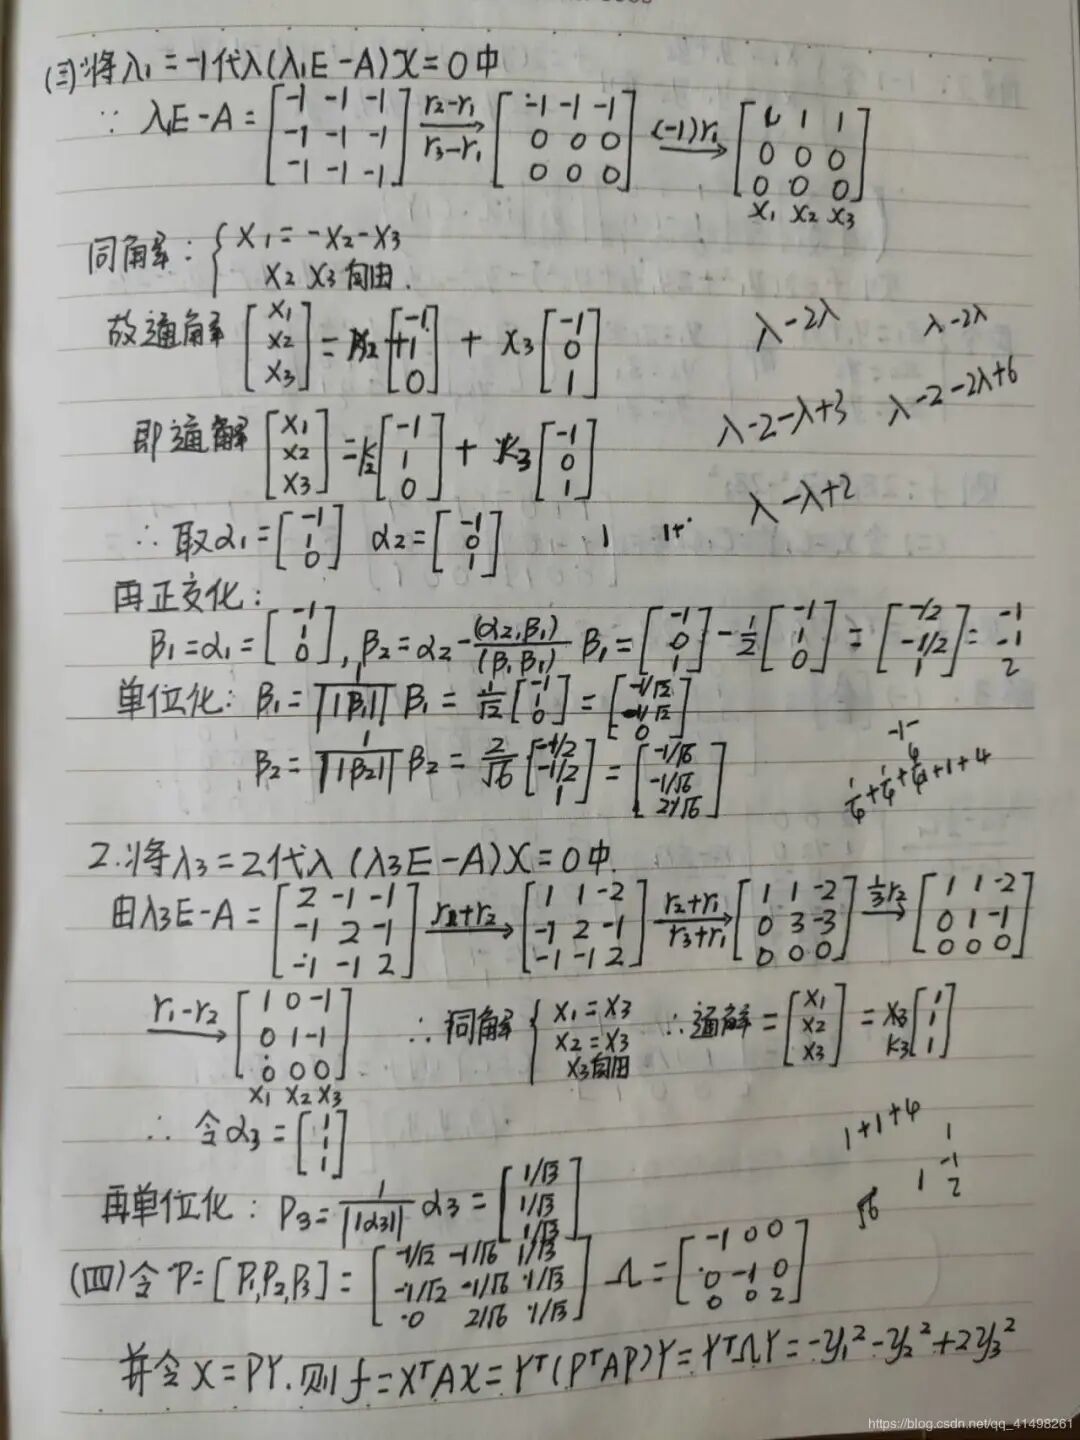 (三)将λ₁=-1代入(λ₁E-A)X=0中
∵ λ₁E-A=[-1 -1 -1; -1 -1 -1; -1 -1 -1] r₂-r₁ r₃-r₁ → [-1 -1 -1; 0 0 0; 0 0 0] (-1)r₁ → [1 1 1; 0 0 0; 0 0 0]
x₁ x₂ x₃
同解: { x₁=-x₂-x₃
x₂ x₃自由.
故通解 [x₁; x₂; x₃] = x₂[-1; +1; 0] + x₃[-1; 0; 1]
λ-2λ λ-2λ
即通解 [x₁; x₂; x₃] = k₂[-1; 1; 0] + k₃[-1; 0; 1]
λ-2-λ+3 λ-2-2λ+6
λ-λ+2
∴取α₁=[-1; 1; 0] α₂=[-1; 0; 1] 1 1+
再正交化:
β₁=α₁=[-1; 1; 0], β₂=α₂-(α₂,β₁)/(β₁,β₁) β₁=[-1; 0; 1]-1/2[-1; 1; 0]=[-1/2; -1/2; 1]= -1 -1 2
单位化: β₁=1/||β₁|| β₁=1/√2[-1; 1; 0]=[-1/√2; -1/√2; 0]
β₂=1/||β₂|| β₂=2/√6[-1/2; -1/2; 1]=[-1/√6; -1/√6; 2/√6]
2.将λ₃=2代入(λ₃E-A)X=0中.
由λ₃E-A=[2 -1 -1; -1 2 -1; -1 -1 2] r₁+r₂ → [1 1 -2; -1 2 -1; -1 -1 2] r₂+r₁ r₃+r₁ → [1 1 -2; 0 3 -3; 0 0 0] 1/3r₂ → [1 1 -2; 0 1 -1; 0 0 0]
r₁-r₂ → [1 0 -1; 0 1 -1; 0 0 0] ∴同解 { x₁=x₃ x₂=x₃ x₃自由 ∴通解=[x₁; x₂; x₃]=x₃ k₃[1; 1; 1]
x₁ x₂ x₃
∴令α₃=[1; 1; 1]
1+1+4
1 -1 1 2
√6
再单位化: P₃=1/||α₃|| α₃=[1/√3; 1/√3; 1/√3]
(四)令P=[P₁,P₂,P₃]=[-1/√2 -1/√6 1/√3; -1/√2 -1/√6 1/√3; 0 2/√6 1/√3] Λ=[-1 0 0; 0 -1 0; 0 0 2]
并令X=PY.则f=XᵀAX=Yᵀ(PᵀAP)Y=YᵀΛY=-y₁²-y₂²+2y₃²
https://blog.csdn.net/qq_41498261